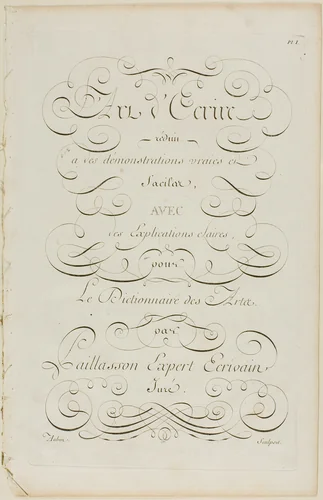 Pl. I.
Art d'Ecrire
réduit
a des demonstrations vraies et
faciles,
AVEC
des Explications claires,
pour
Le Dictionnaire des Arts
par
Paillasson Expert Ecrivain
Juré.
Aubin Sculpsit.